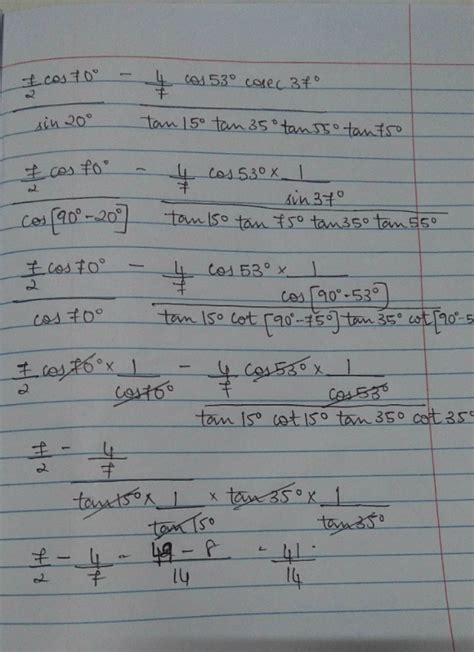 7/2 cos70° - 4/7 cos53° cosec 37°
sin 20° tan15° tan35° tan55° tan75°
7/2 cos70° - 4/7 cos53° × 1/sin37°
cos[90°-20°] tan15° tan 75° tan35° tan 55°
7/2 cos70° - 4/7 cos53° × 1/cos[90°-53°]
cos70° tan 15° cot [90°-75°] tan 35° cot [90°-5
7/2 cos70° × 1/cos70° - 4/7 cos53° × 1/cos53°
tan15° cot15° tan35° cot 35°
7/2 - 4/7
tan15° × 1/tan15° × tan35° × 1/tan35°
7/2 - 4/7 - 49 - 8/14 - 41/14.